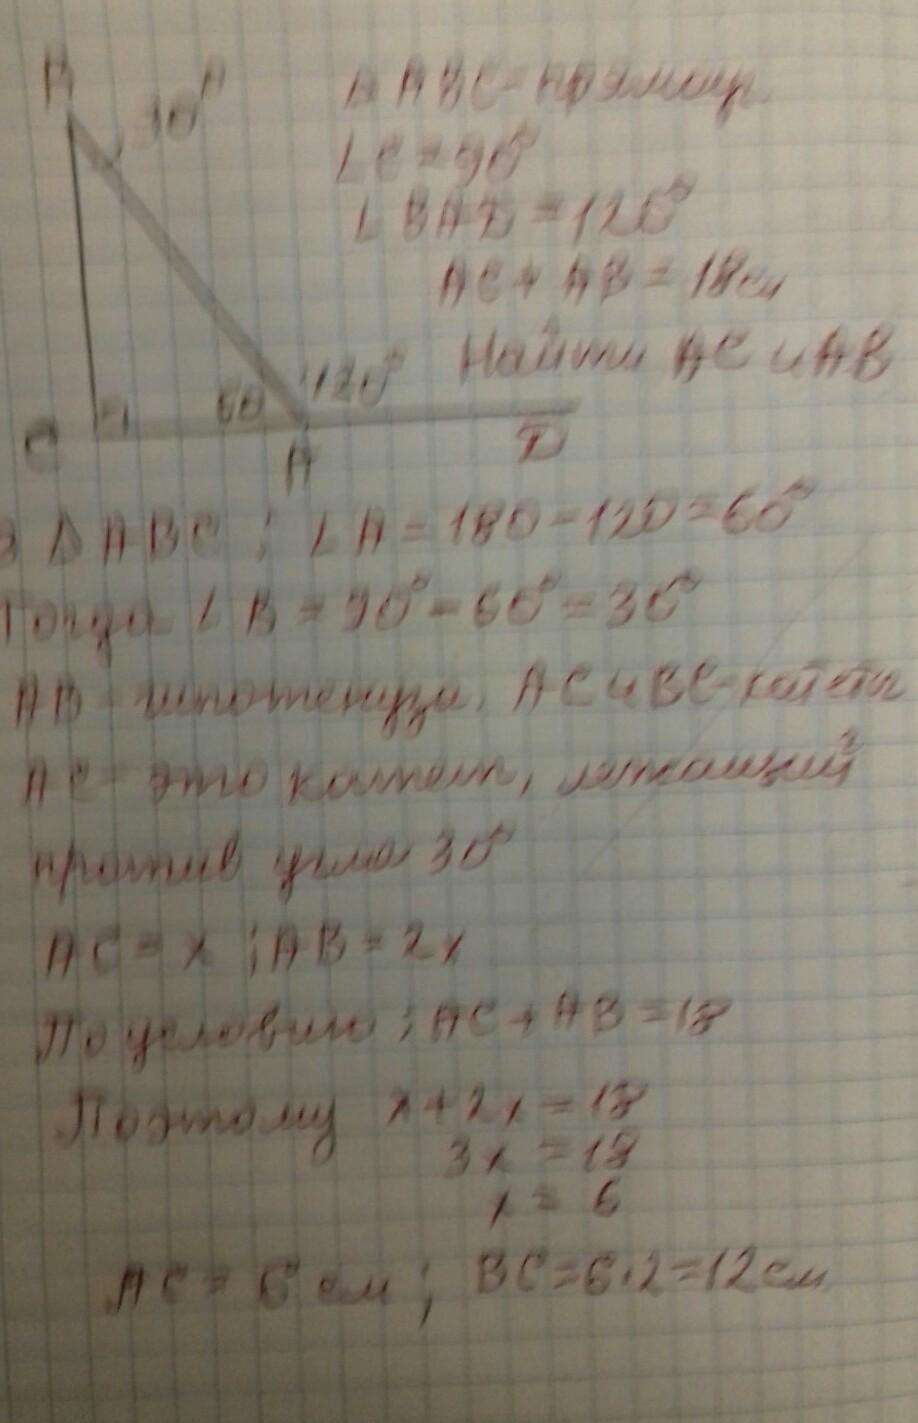 B
30°
Δ ABC - прямоуг.
∠C = 90°
∠BAD = 120°
AC + AB = 18 см
Найти AC и AB
60 120°
C A D
В Δ ABC ; ∠A = 180 - 120 = 60°
Тогда ∠B = 90° - 60° = 30°
AB - гипотенуза, AC и BC - катеты
AC - это катет, лежащий
против угла 30°
AC = x ; AB = 2x
По условию ; AC + AB = 18
Поэтому x + 2x = 18
3x = 18
x = 6
AC = 6 см ; BC = 6·2 = 12 см